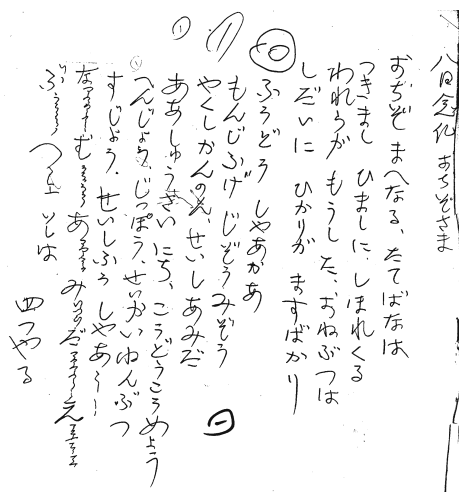 八日念仏 おちぞさま
おぢぞ まへなる、たてばなは
つきまし ひましに、しほれくる
われらが もうした、おねぶつは
しだいに ひかりが ますばかり
ふうどう しやあかあ
もんじふげ じぞうみぞう
やくしかんのん、せいしあみだ
ああしゅうざいにち、こうどうこうめよう
へんじょう、じっぽう、せかい ねんぶつ
すじょう、せいしふう しやあう
む あ み だ え
ぶう つ
四つやる